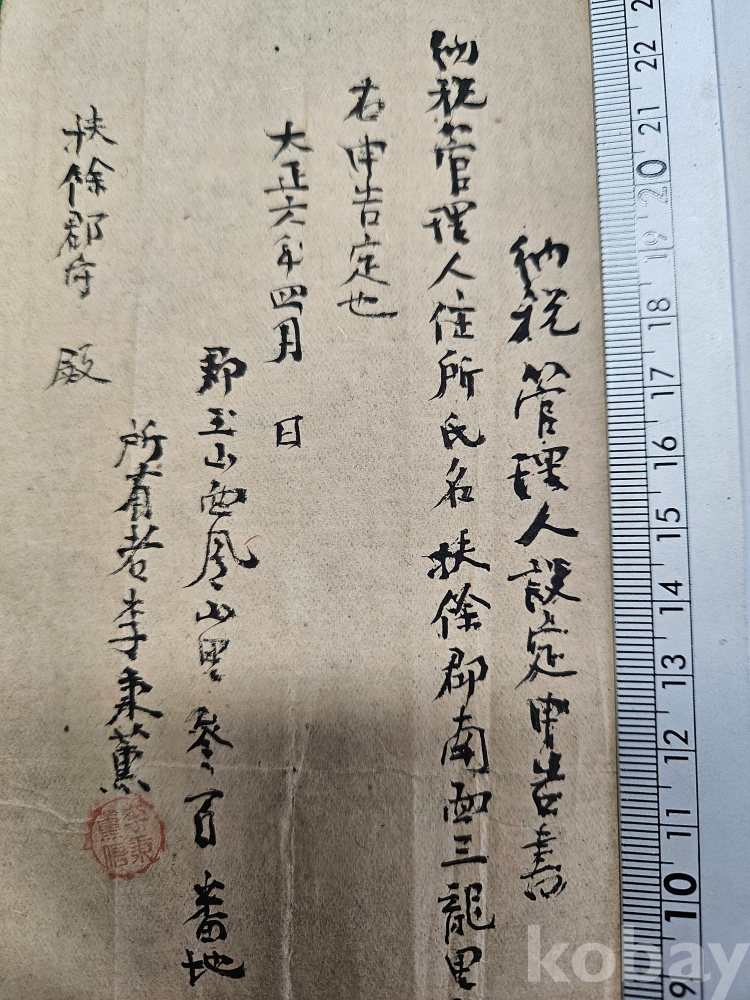 納稅管理人設定申告書
納稅管理人住所氏名扶餘郡南面三龍里
右申告定也
大正六年四月 日
郡玉山面鳳山里參百番地
所有者李秉薰
扶餘郡守 殿
22
21
20
19
18
17
16
15
14
13
12
11
10
9
kobay